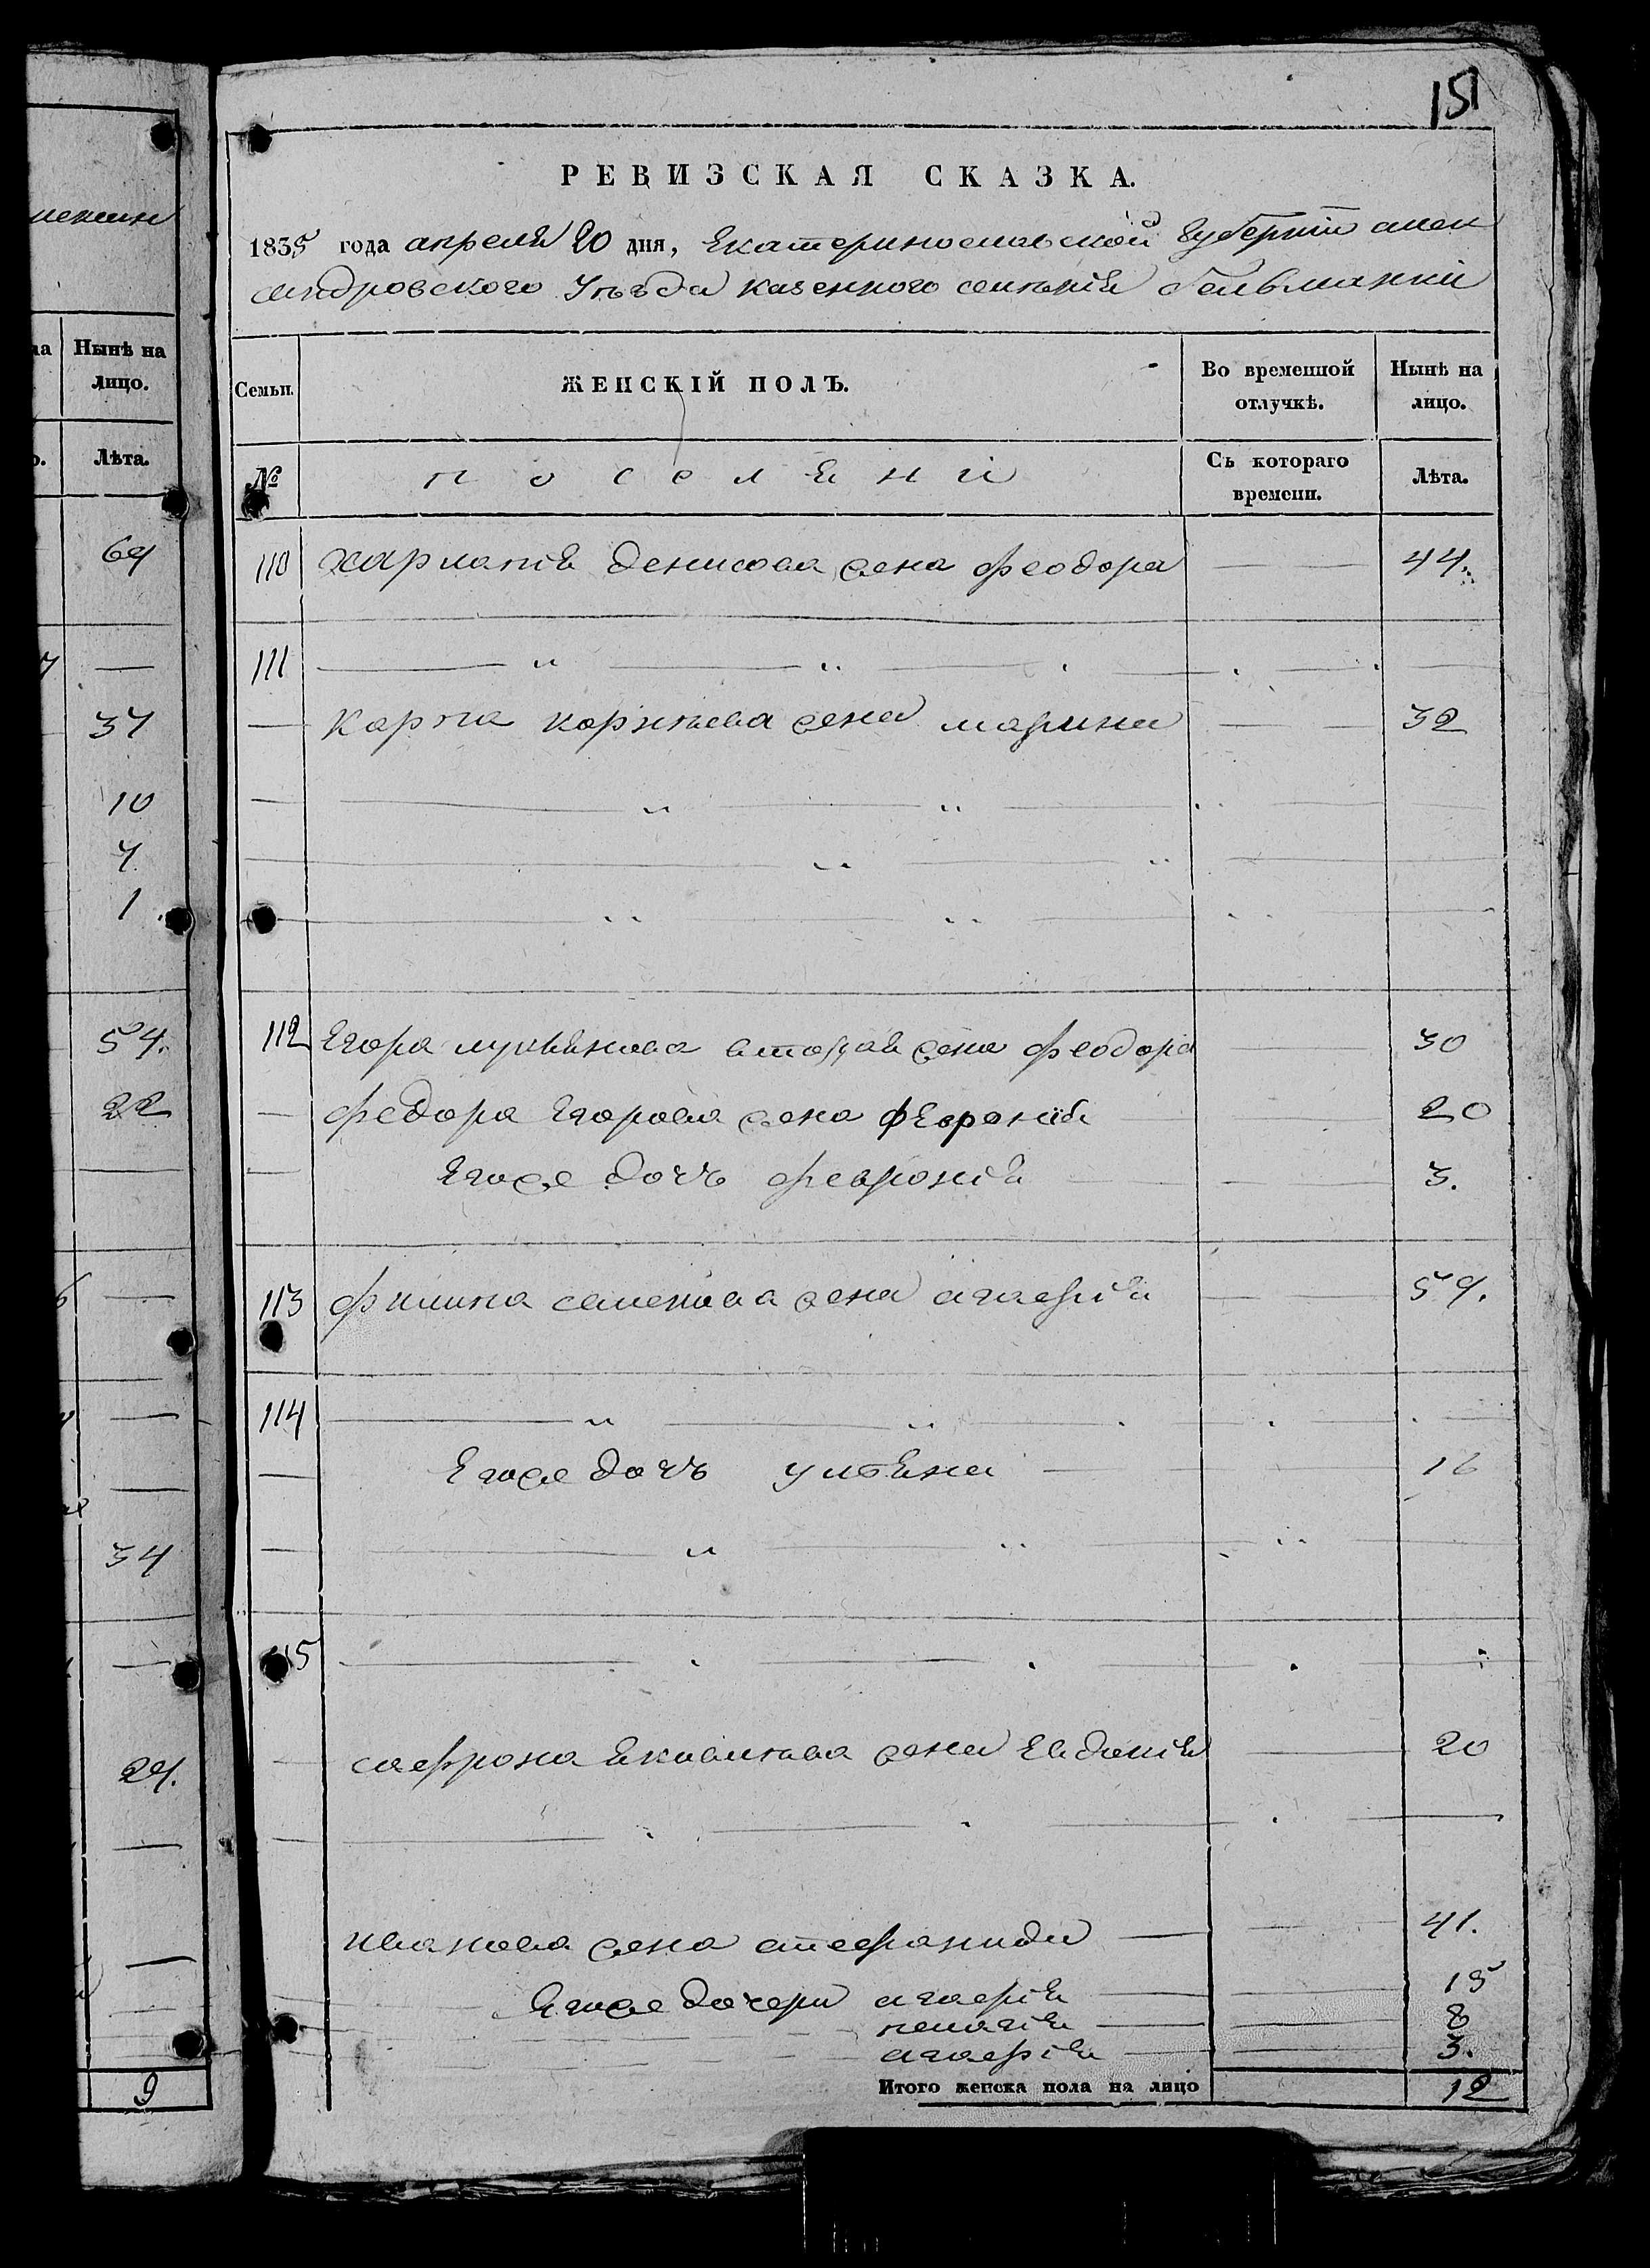 151
РЕВИЗСКАЯ СКАЗКА.
1835 года апреля 20 дня, Екатеринославской Губернiи алек
сандровского Уѣзда казенного селѣнiя
Семьи.
ЖЕНСКIЙ ПОЛЪ.
Во временной отлучкѣ.
Нынѣ на лицо.
№
поселяни
Съ котораго времени.
Лѣта.
110 харлапiя денисова жена феодора 44.
111
Карпа корнѣева жена марина 32
112 Егора лукянова вторая жена феодора 30
федора Егорова жена фЕвронiя 20
Егоже дочъ февронiя 3.
113 филипа семенова жена агафiя 54.
114
Егоже дочъ улияна 16
115
сафрона якивлѣва жена Евдокiя 20
иванова жена стефанида 41.
Егоже дочери агафiя 15
пелагiя 8
агафiя 3.
Итого женска пола на лицо 12
Нынѣ на лицо.
Лѣта.
64
37
10
4
1
54.
22
34
24.
9